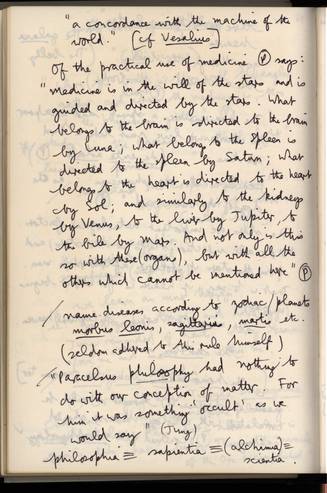 "a concordance with the machine of the
world." [cf Vesalius]
Of the practical use of medicine (P) says:
"medicine is in the will of the stars and is
guided and directed by the stars. What
belongs to the brain is directed to the brain
by Luna; what belongs to the spleen is
directed to the spleen by Saturn; what
belongs to the heart is directed to the heart
by Sol; and similarly to the kidneys
by Venus, to the liver by Jupiter, to
the bile by Mars. And not only is this
so with these (organs), but with all the
others which cannot be mentioned here" (P)
/ name diseases according to zodiac/planets
morbus leonis, sagittarius, martis etc.
(seldom adhered to this rule himself)
/ "Paracelsus philosophy had nothing to
do with our conception of matter. For
him it was something 'occult' as we
would say" (Jung)
philosophia ≡ sapientia ≡ (alchimia) ≡
scientia.